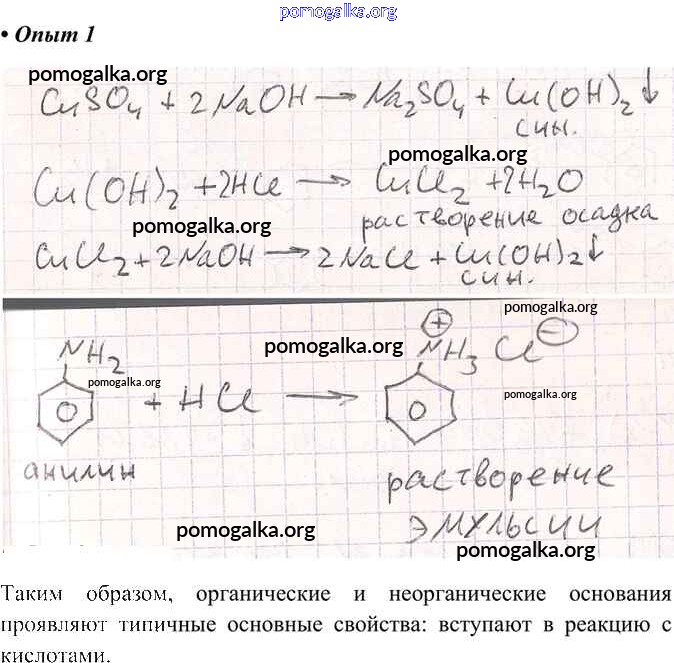 pomogalka.org
• Опыт 1
pomogalka.org
CuSO₄ + 2NaOH → Na₂SO₄ + Cu(OH)₂↓
син.
pomogalka.org
Cu(OH)₂ + 2HCl → CuCl₂ + 2H₂O
pomogalka.org
растворение осадка
CuCl₂ + 2NaOH → 2NaCl + Cu(OH)₂↓
син.
pomogalka.org
NH₂ pomogalka.org ⊕ NH₃ Cl ⊖
pomogalka.org
+ HCl →
pomogalka.org
анилин
растворение
эмульсии
pomogalka.org
pomogalka.org
Таким образом, органические и неорганические основания
проявляют типичные основные свойства: вступают в реакцию с
кислотами.